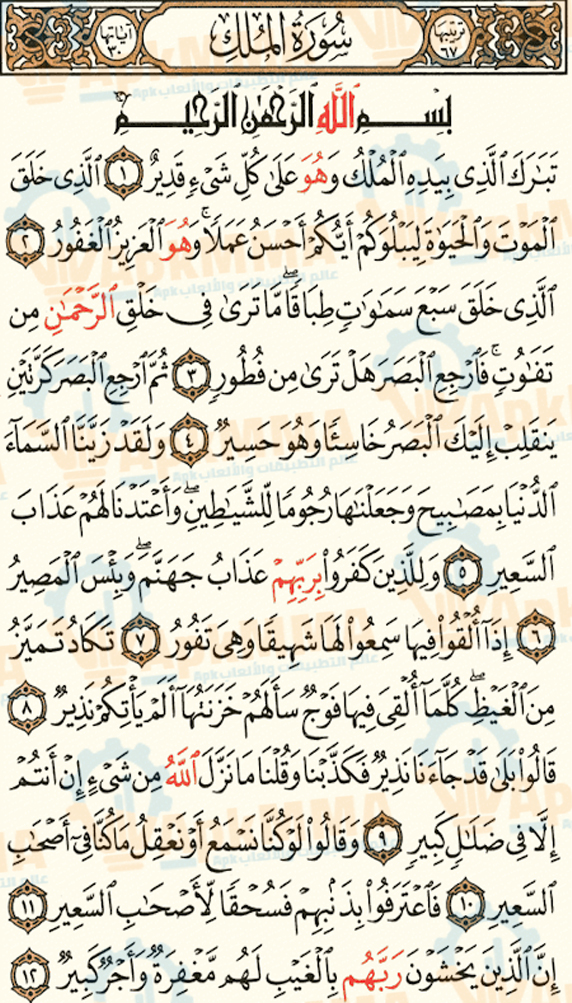 ترتيبها ٦٧ سُورَةُ المُلْكِ آياتها ٣٠
بِسْمِ ٱللَّهِ ٱلرَّحْمَٰنِ ٱلرَّحِيمِ
تَبَٰرَكَ ٱلَّذِى بِيَدِهِ ٱلْمُلْكُ وَهُوَ عَلَىٰ كُلِّ شَىْءٍ قَدِيرٌ ١ ٱلَّذِى خَلَقَ
ٱلْمَوْتَ وَٱلْحَيَوٰةَ لِيَبْلُوَكُمْ أَيُّكُمْ أَحْسَنُ عَمَلًا ۚ وَهُوَ ٱلْعَزِيزُ ٱلْغَفُورُ ٢
ٱلَّذِى خَلَقَ سَبْعَ سَمَٰوَٰتٍ طِبَاقًا ۖ مَّا تَرَىٰ فِى خَلْقِ ٱلرَّحْمَٰنِ مِن
تَفَٰوُتٍ ۚ فَٱرْجِعِ ٱلْبَصَرَ هَلْ تَرَىٰ مِن فُطُورٍ ٣ ثُمَّ ٱرْجِعِ ٱلْبَصَرَ كَرَّتَيْنِ
يَنقَلِبْ إِلَيْكَ ٱلْبَصَرُ خَاسِئًا وَهُوَ حَسِيرٌ ٤ وَلَقَدْ زَيَّنَّا ٱلسَّمَآءَ
ٱلدُّنْيَا بِمَصَٰبِيحَ وَجَعَلْنَٰهَا رُجُومًا لِّلشَّيَٰطِينِ ۖ وَأَعْتَدْنَا لَهُمْ عَذَابَ
ٱلسَّعِيرِ ٥ وَلِلَّذِينَ كَفَرُوا۟ بِرَبِّهِمْ عَذَابُ جَهَنَّمَ ۖ وَبِئْسَ ٱلْمَصِيرُ
٦ إِذَآ أُلْقُوا۟ فِيهَا سَمِعُوا۟ لَهَا شَهِيقًا وَهِىَ تَفُورُ ٧ تَكَادُ تَمَيَّزُ
مِنَ ٱلْغَيْظِ ۖ كُلَّمَآ أُلْقِىَ فِيهَا فَوْجٌ سَأَلَهُمْ خَزَنَتُهَآ أَلَمْ يَأْتِكُمْ نَذِيرٌ ٨
قَالُوا۟ بَلَىٰ قَدْ جَآءَنَا نَذِيرٌ فَكَذَّبْنَا وَقُلْنَا مَا نَزَّلَ ٱللَّهُ مِن شَىْءٍ إِنْ أَنتُمْ
إِلَّا فِى ضَلَٰلٍ كَبِيرٍ ٩ وَقَالُوا۟ لَوْ كُنَّا نَسْمَعُ أَوْ نَعْقِلُ مَا كُنَّا فِىٓ أَصْحَٰبِ
ٱلسَّعِيرِ ١٠ فَٱعْتَرَفُوا۟ بِذَنۢبِهِمْ فَسُحْقًا لِّأَصْحَٰبِ ٱلسَّعِيرِ ١١
إِنَّ ٱلَّذِينَ يَخْشَوْنَ رَبَّهُم بِٱلْغَيْبِ لَهُم مَّغْفِرَةٌ وَأَجْرٌ كَبِيرٌ ١٢
ApkMMA
عالم التطبيقات والألعاب Apk